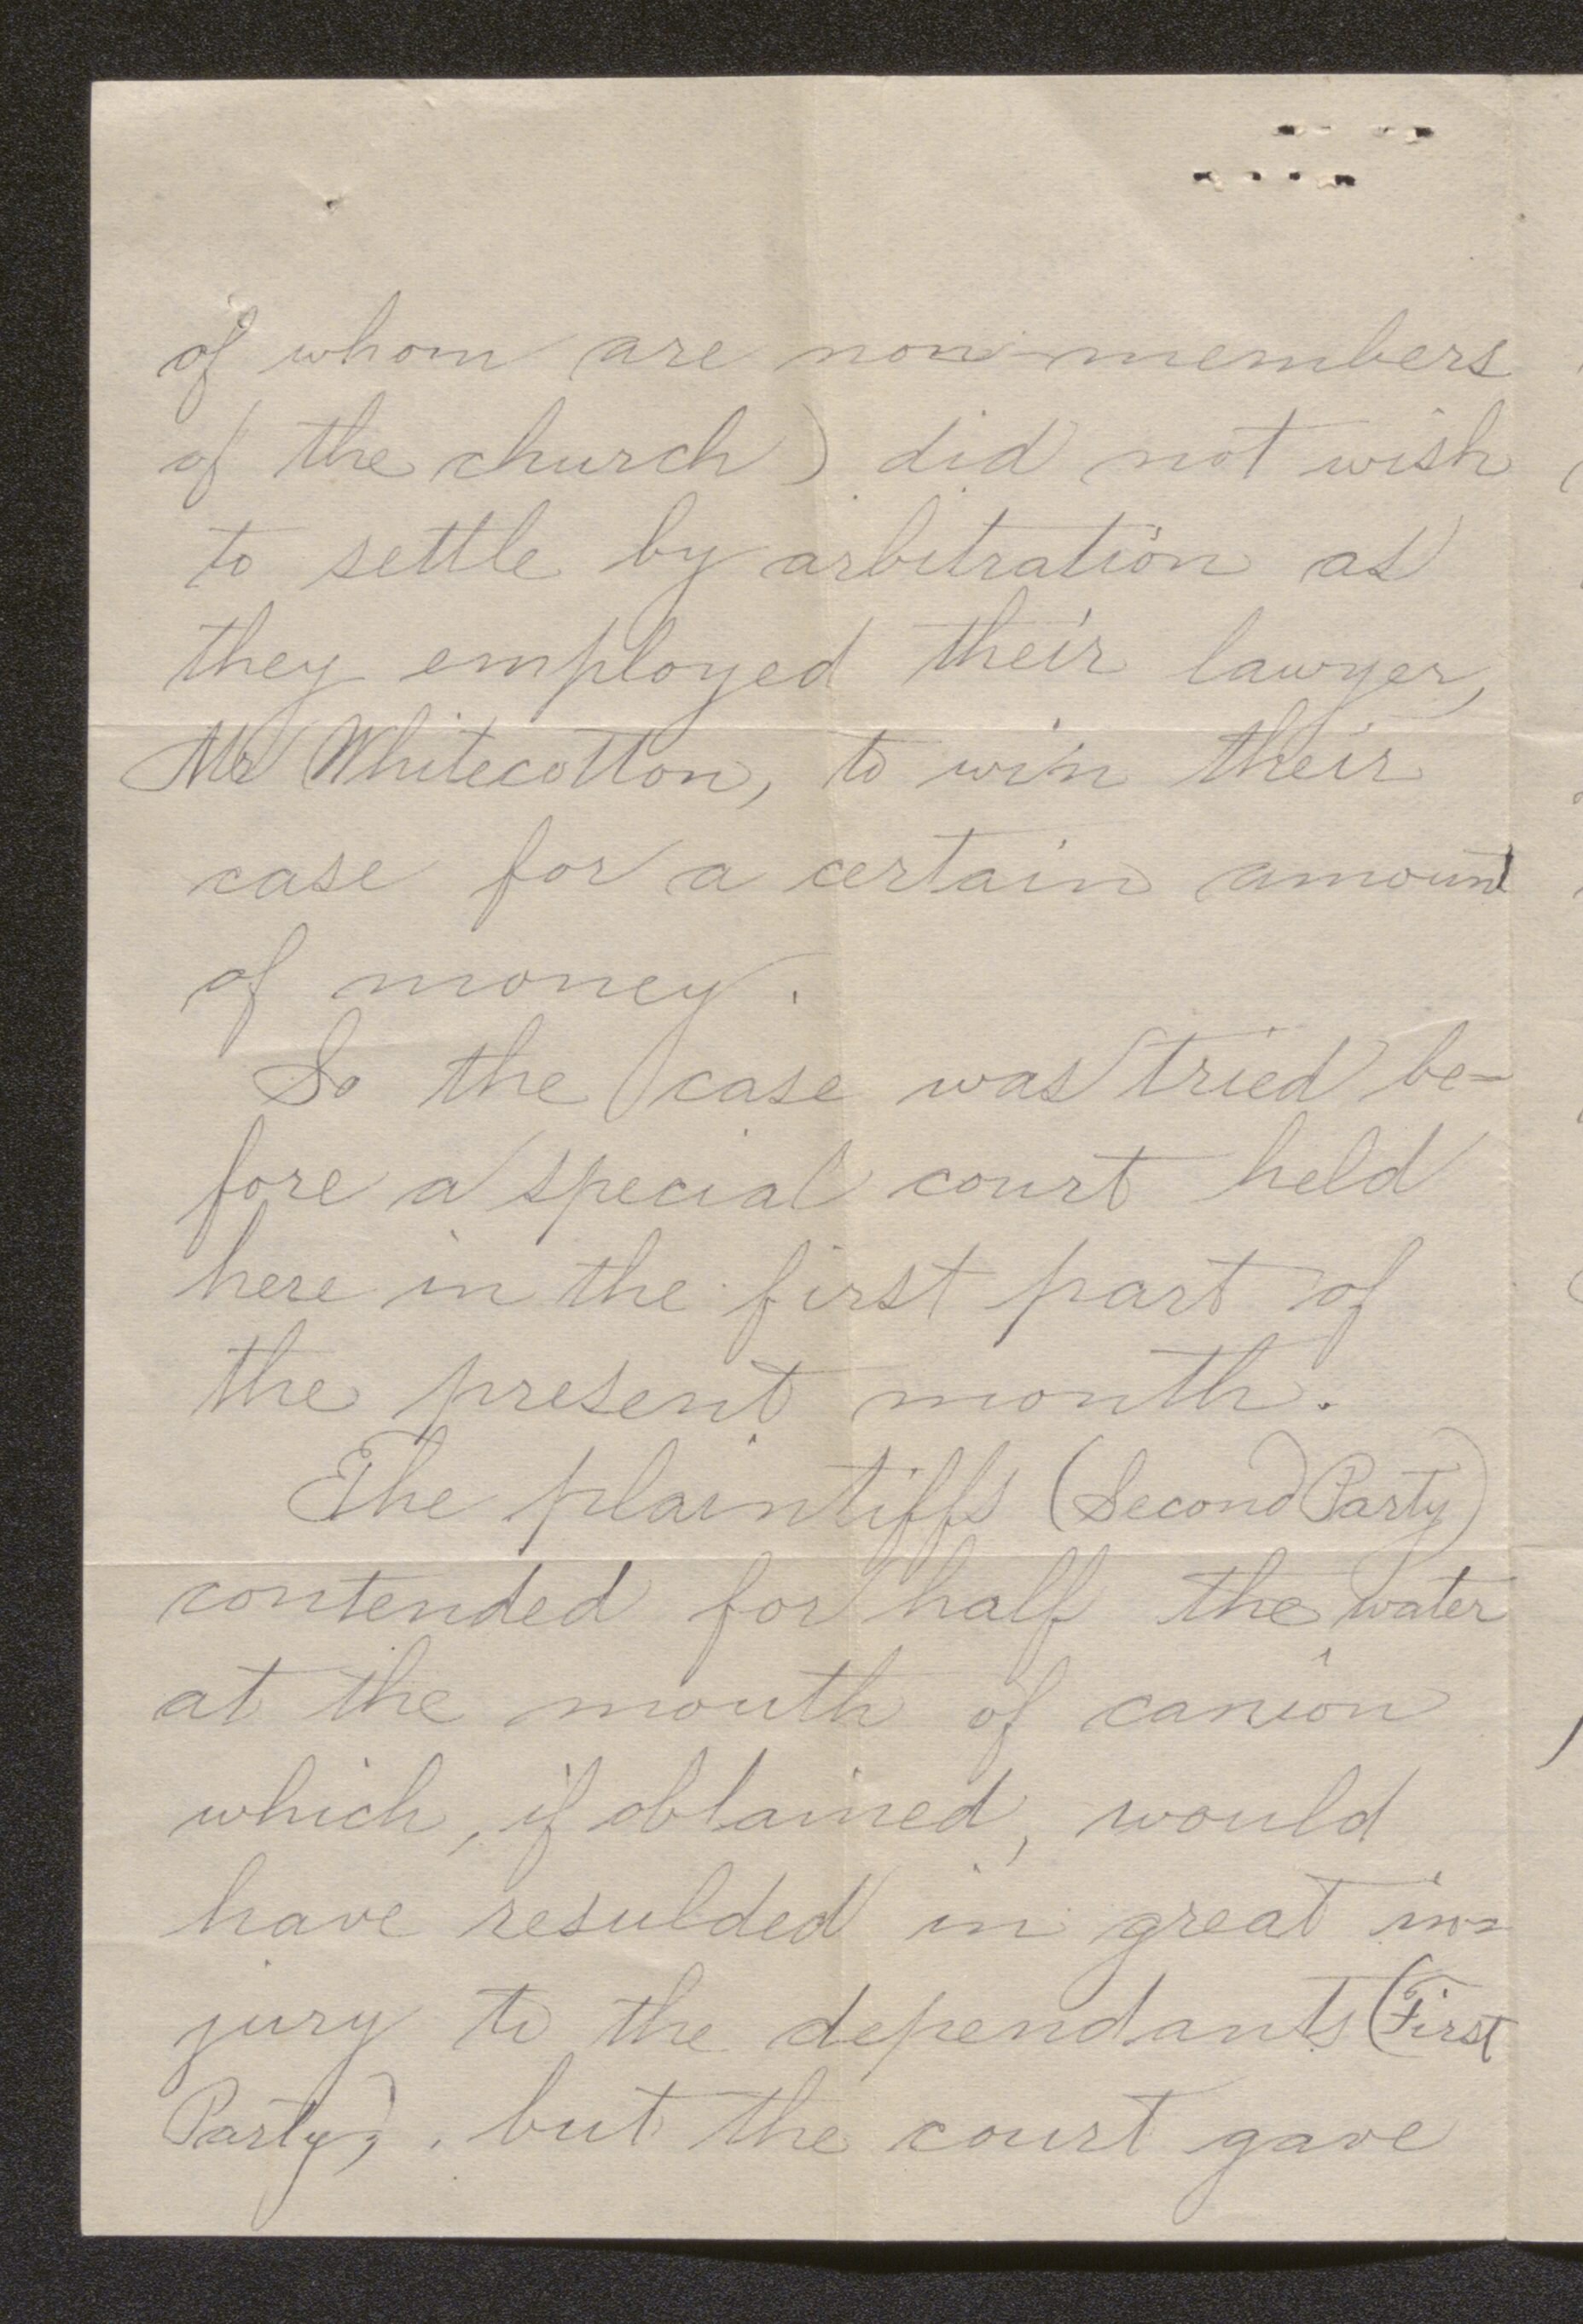 of whom are non-members
of the church) did not wish
to settle by arbitration as
they employed their lawyer,
Mr Whitecotton, to win their
case for a certain amount
of money.
So the case was tried be-
fore a special court held
here in the first part of
the present month.
The plaintiffs (Second Party)
contended for half the water
at the mouth of canion
which, if obtained, would
have resulded in great in=
jury to the dependants (First
Party), but the court gave